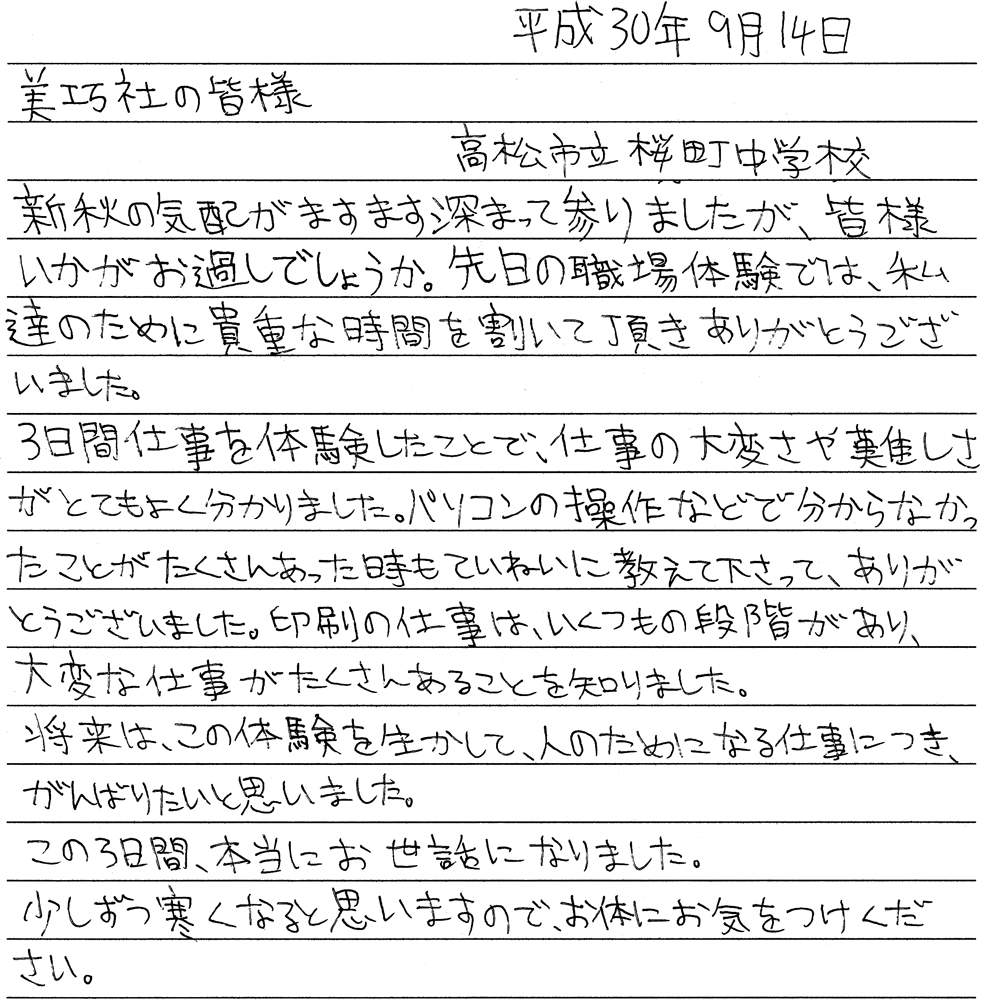 平成30年9月14日
美巧社の皆様
高松市立桜町中学校
新秋の気配がますます深まって参りましたが、皆様
いかがお過しでしょうか。先日の職場体験では、私
達のために貴重な時間を割いて頂きありがとうござ
いました。
3日間仕事を体験したことで、仕事の大変さや難しさ
がとてもよく分かりました。パソコンの操作などで分からなかっ
たことがたくさんあった時もていねいに教えて下さって、ありが
とうございました。印刷の仕事は、いくつもの段階があり、
大変な仕事がたくさんあることを知りました。
将来は、この体験を生かして、人のためになる仕事につき、
がんばりたいと思いました。
この3日間、本当にお世話になりました。
少しずつ寒くなると思いますので、お体にお気をつけくだ
さい。